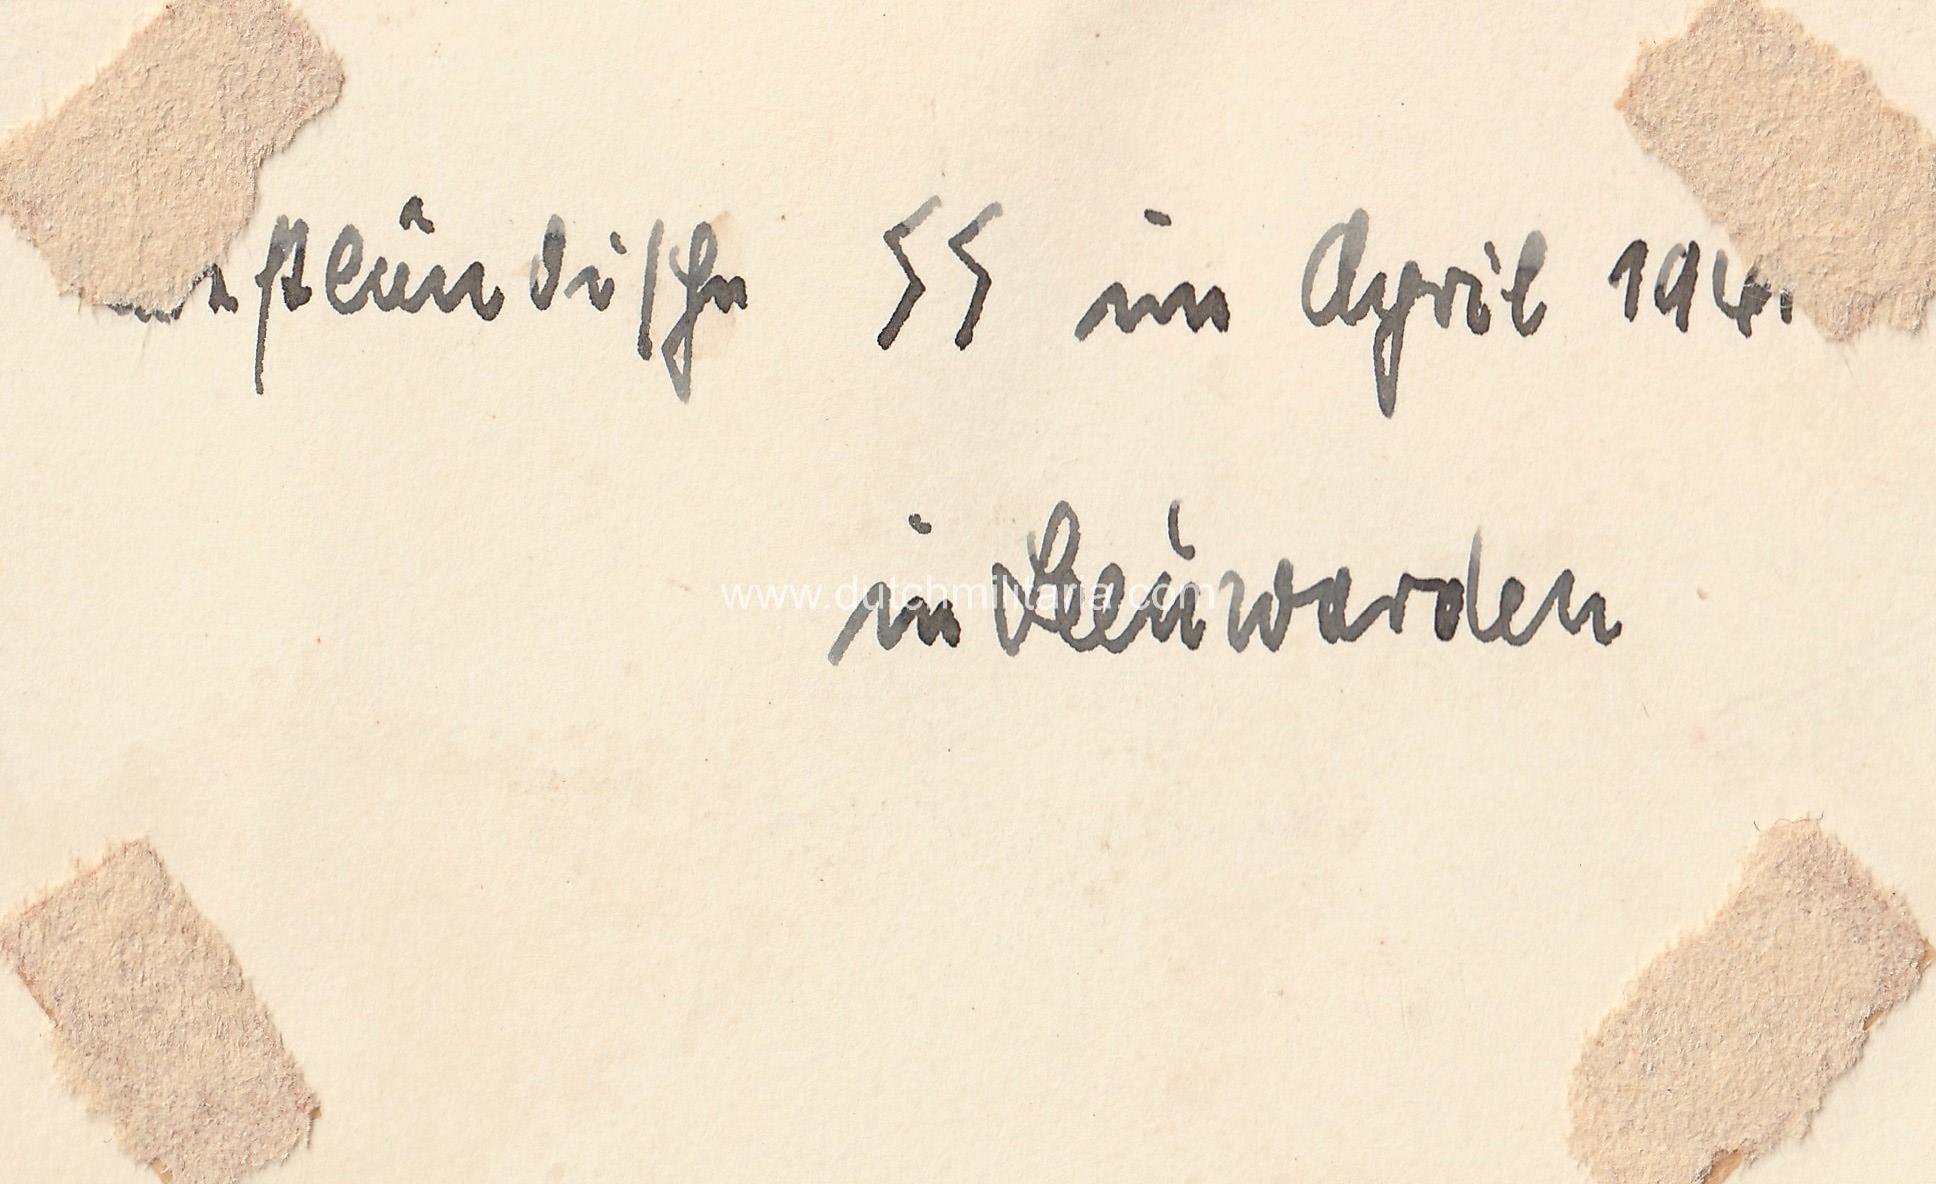 SS im April 194
in Leeuwarden
www.dutchmilitaria.com